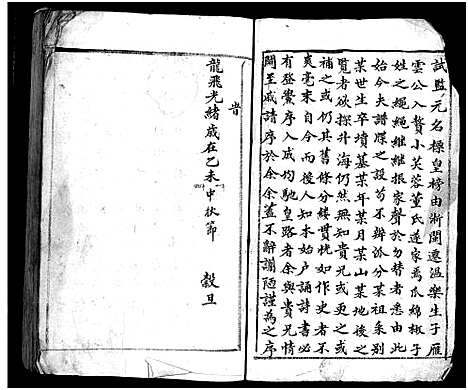 試監元名標皇榜由浙閩遷溫樂生子雁
雲公入贅小芙蓉董氏遂家為瓜綿椒子
姓之繩繩繼繼振家聲於勿替者悉由此
始今夫譜牒之設苟不辨派分某祖承某
某世生卒墳墓某年某月某山某地後之
覽者欲探升海仍然無知貴兄或更之或
補之或仍其舊條分縷貫以作史者不
爽毫末自今而後人知木始戶誦詩書將
有登黌序入成均馳皇路者余與貴兄情
關至戚請序於余余蓋不辭謭陋謹為之序
旹
龍飛光緒歲在乙未中秋節 穀旦